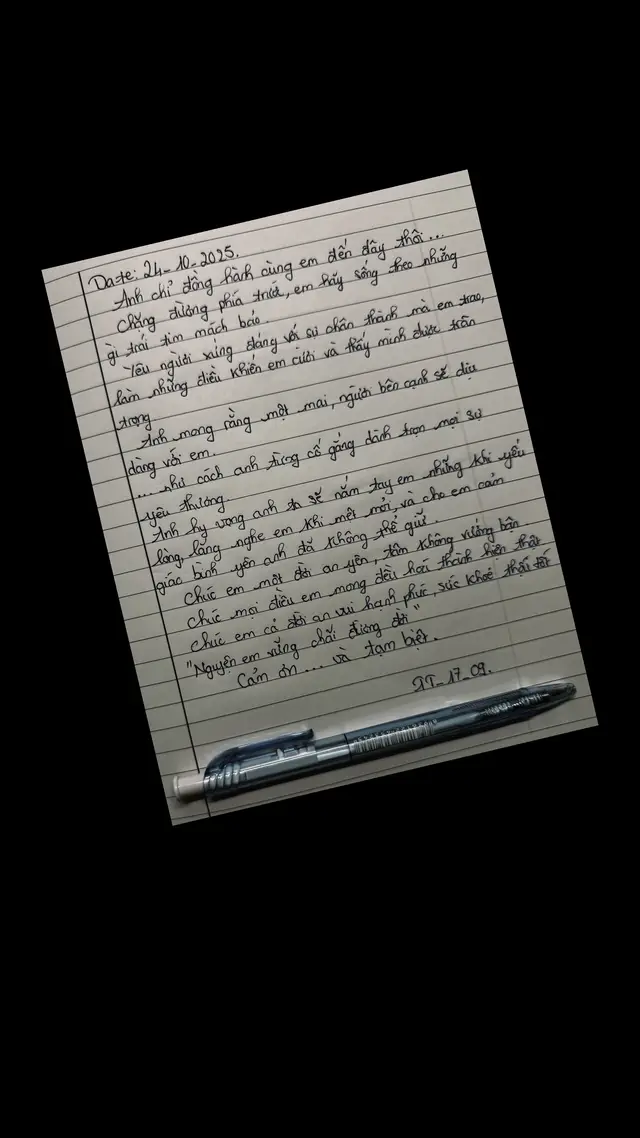 Date: 24-10-2025.
Anh chỉ đồng hành cùng em đến đây thôi...
Chặng đường phía trước, em hãy sống theo những
gì trái tim mách bảo
Yêu người xứng đáng với sự chân thành mà em trao,
làm những điều khiến em cười và thấy mình được trân
trọng
Anh mong rằng một mai, người bên cạnh sẽ dịu
dàng với em.
... như cách anh từng cố gắng dành trọn mọi sự
yêu thương.
Anh hy vọng anh ta sẽ nắm tay em những khi yếu
lòng, lắng nghe em khi mệt mỏi, và cho em cảm
giác bình yên anh đã không thể giữ.
Chúc em một đời an yên, tâm không vướng bận
Chúc mọi điều em mong đều hoá thành hiện thật
Chúc em cả đời an vui hạnh phúc, sức khoẻ thật tốt
"Nguyện em vững chãi đường đời"
Cảm ơn... và tạm biệt.
17-09.